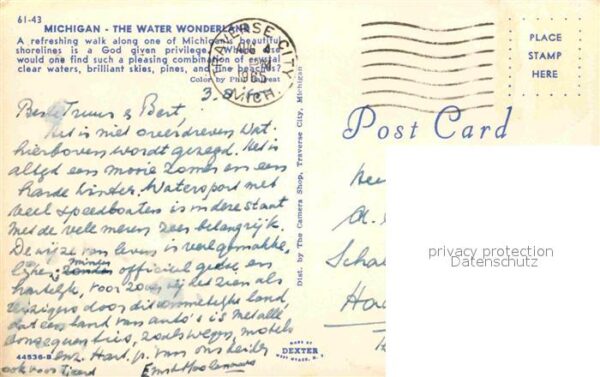 61-43
MICHIGAN - THE WATER WONDERLAND
A refreshing walk along one of Michigan's beautiful
shorelines is a God given privilege. Where else
would one find such a pleasing combination of crystal
clear waters, brilliant skies, pines, and fine beaches?
Color by Phil
TRAVERSE CITY
1965
MICH.
PLACE
STAMP
HERE
Post Card
Beste Truus & Bert,
Het is niet overdreven wat
hierboven wordt gezegd. Het is
altyd een mooie zomer en een
harde winter. Watersport met
veel speedboaten is in dere staat
met de vele meren zeer belangrijk.
De wijze van leven is veel gemakke-
lijker, minder officieel
hartelijk, voor zoo wij het zien als
reizigers door dit land,
dat een land van auto's is met alle
consequenties, zoals wegen, motels
enz. Hart. gr. van ons beiden
ook voor
Dist. by The Camera Shop, Traverse City, Michigan
44536-B
MADE BY
DEXTER
WEST NYACK, N. Y.
privacy protection
Datenschutz